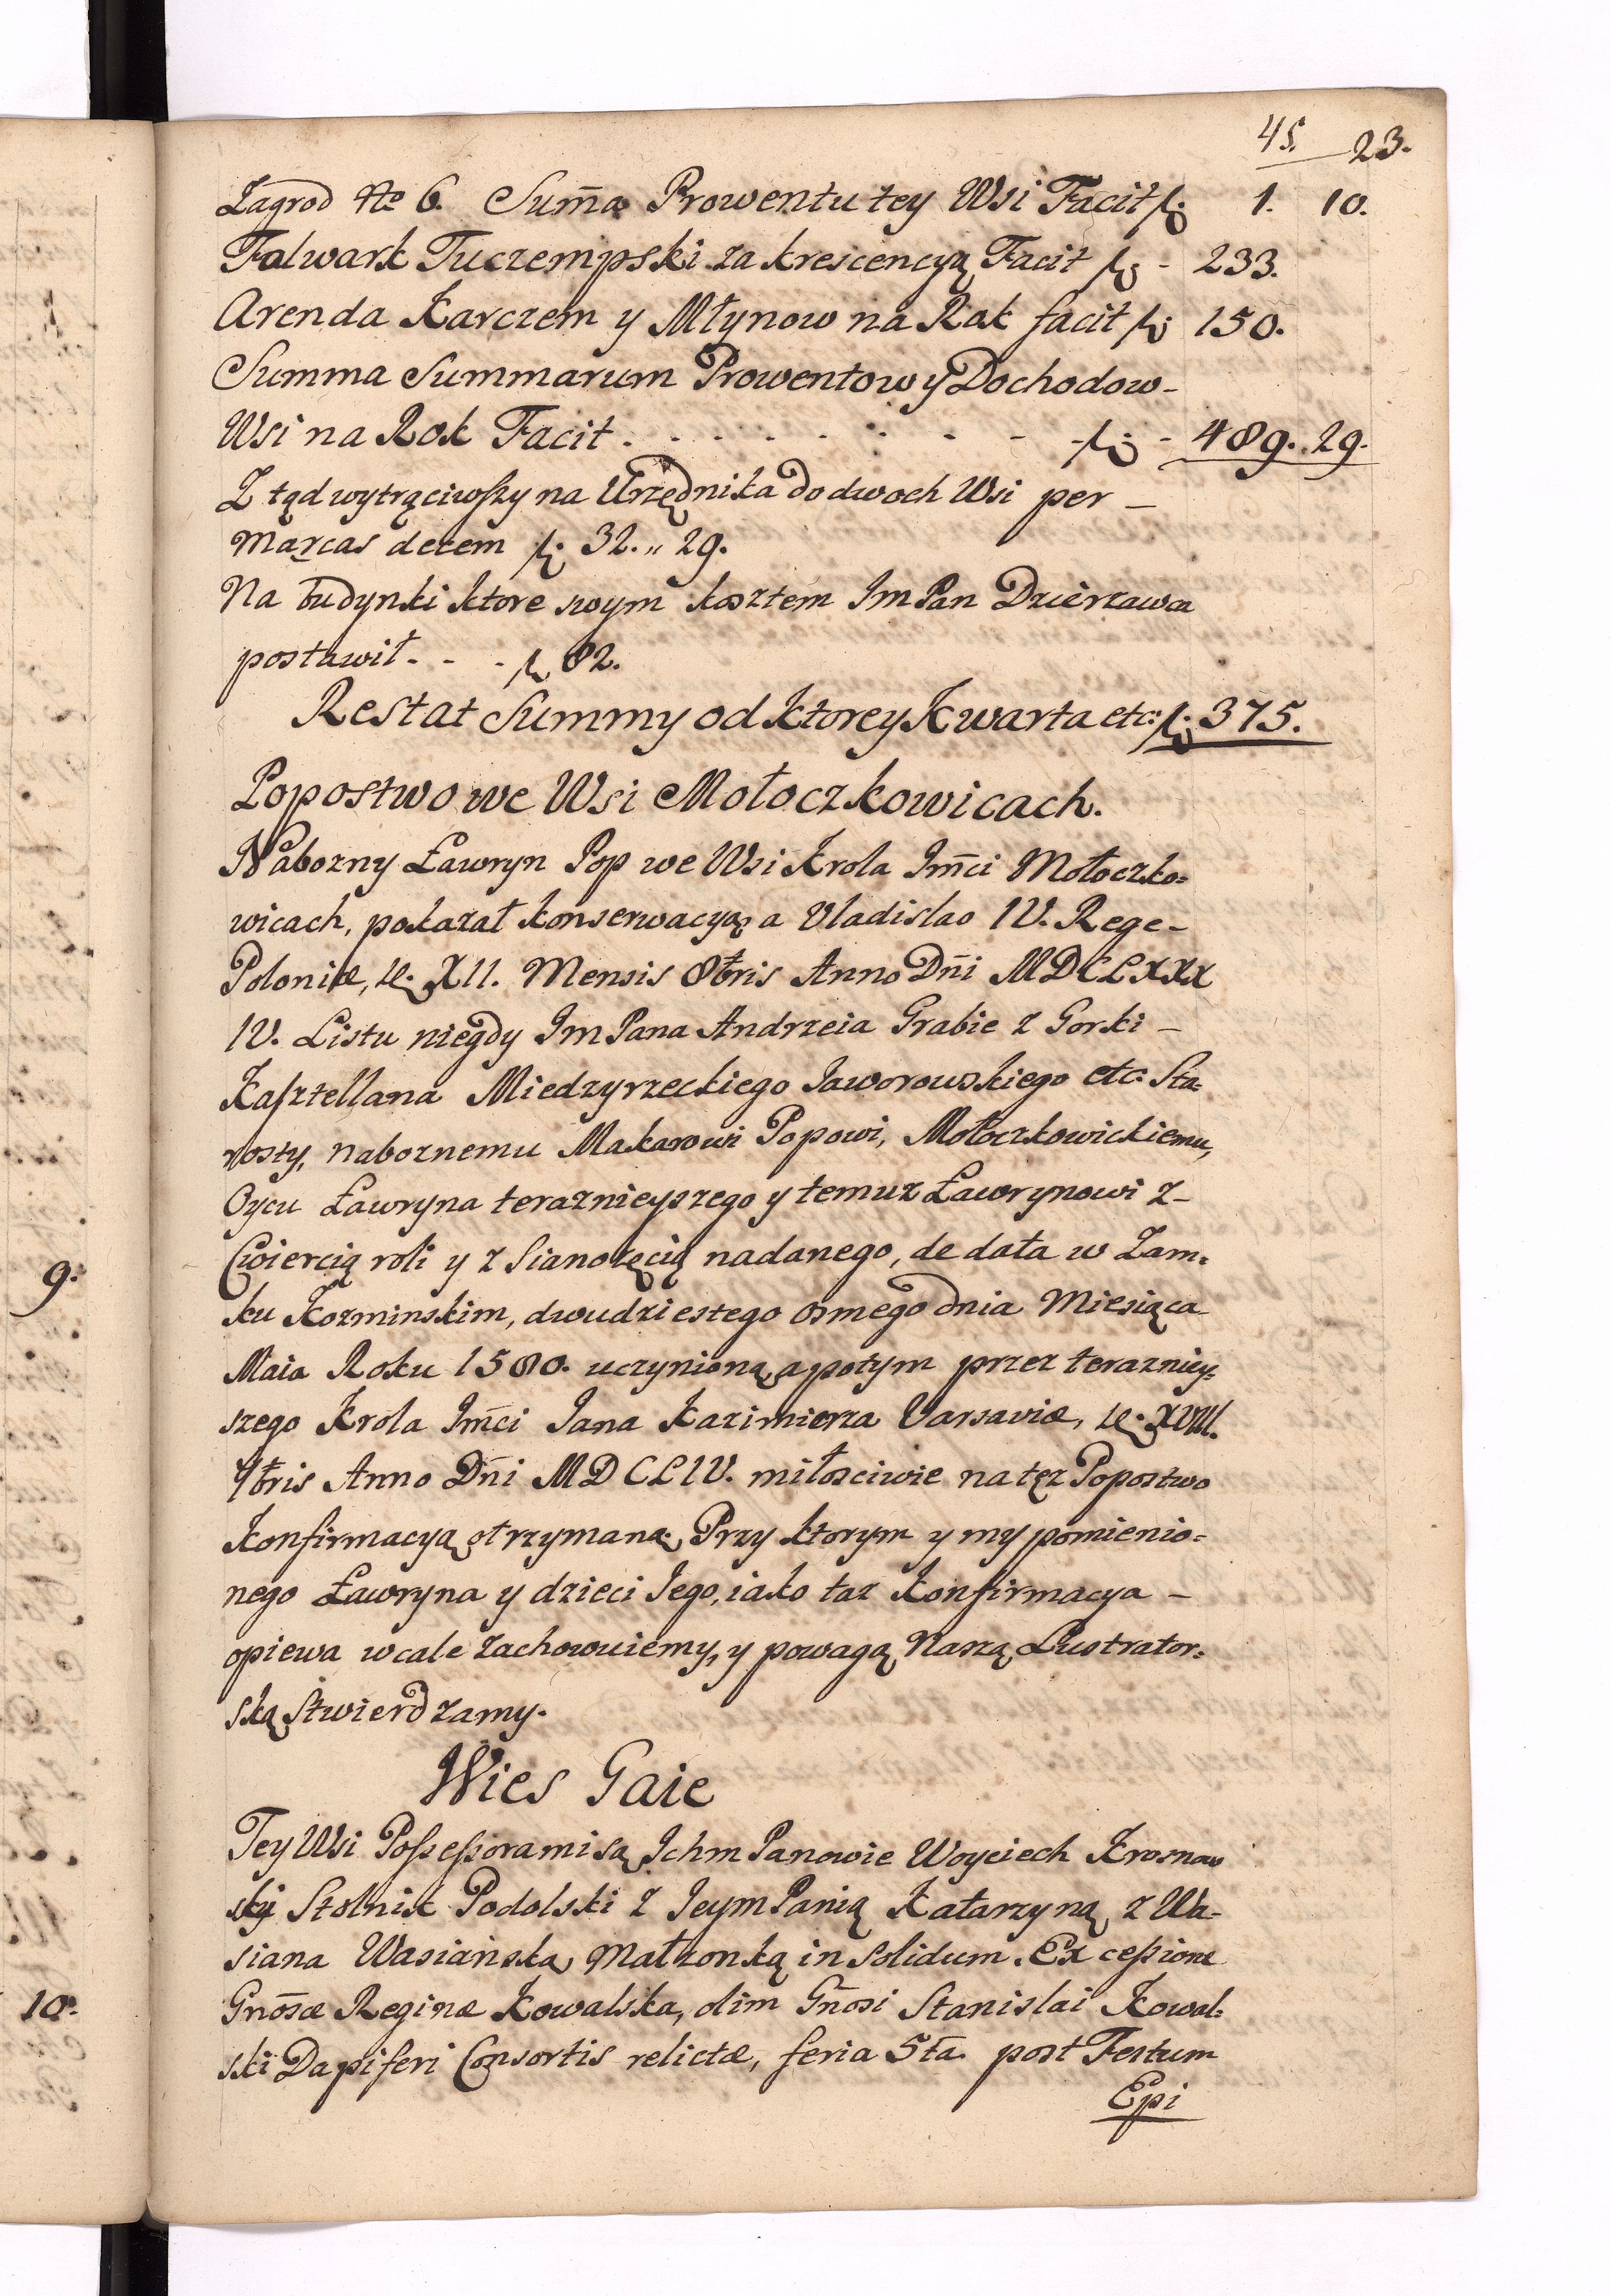 45. 23.
Zagrod No 6. Sum̄a Prowentu tey Wsi Facit fl: 1. 10.
Falwark Tuczempski za krescencyą Facit fl: - 233.
Arenda Karczem y Młynow na Rok facit fl: 150.
Summa Summarum Prowentow y Dochodow -
Wsi na Rok Facit . - - - - - - - - fl: - 489. 29.
Z tąd wytrąciwszy na Urzędnika do dwoch Wsi per -
marcas decem fl: 32.,, 29.
Na budynki ktore swym kosztem Im Pan Dzierzawca
postawił. - - - fl 82.
Restat Summy od Ktorey Kwarta etc: fl: 375.
Popostwo we Wsi Mołoczkowicach.
Nabozny Ławryn Pop we Wsi Krola Im̄ci Mołoczko=
wicach, pokazał konserwacyą a Vladislao IV. Rege -
Poloniæ, XII. Mensis 8bris Anno Dn̄i MDCLXXX
IV. Listu niegdy Im Pana Andrzeia Grabie z Gorki -
Kasztellana Miedzyrzeckiego Jaworowskiego etc: Sta-
rosty, naboznemu Makarowi Popowi, Mołoczkowickiemu,
Oycu Ławryna teraznieyszego y temuz Ławrynowi z -
Cwiercią roli y z Sianozęcią nadanego, de data w Zam=
ku Kozminskim, dwudziestego osmego dnia Miesiąca
Maia Roku 1580. uczynioną, a potym przez terazniey=
szego Krola Im̄ci Jana Kazimierza Varsaviæ, XVIII.
9bris Anno Dn̄i MDCLIV. miłosciwie na tęz Popostwo
Konfirmacyą otrzymaną. Przy ktorym y my pomienio=
nego Ławryna y dzieci Jego, iako taz Konfirmacya -
opiewa wcale zachowuiemy, y powagą Naszą Lustrator=
ską Stwierdzamy.
Wies Gaie
Tey Wsi Possessorami są, Ichm Panowie Woyciech Krosnow
ski Stolnik Podolski z Jeym Panią Katarzyną z Wa-
siana Wasiańską, Małzonką in Solidum. Ex cessione
Gn̄osæ Reginæ Kowalska, olim Gn̄osi Stanislai Kowal=
ski Dapiferi Consortis relictæ, feria 5ta post Festum
Epi
9.
10.